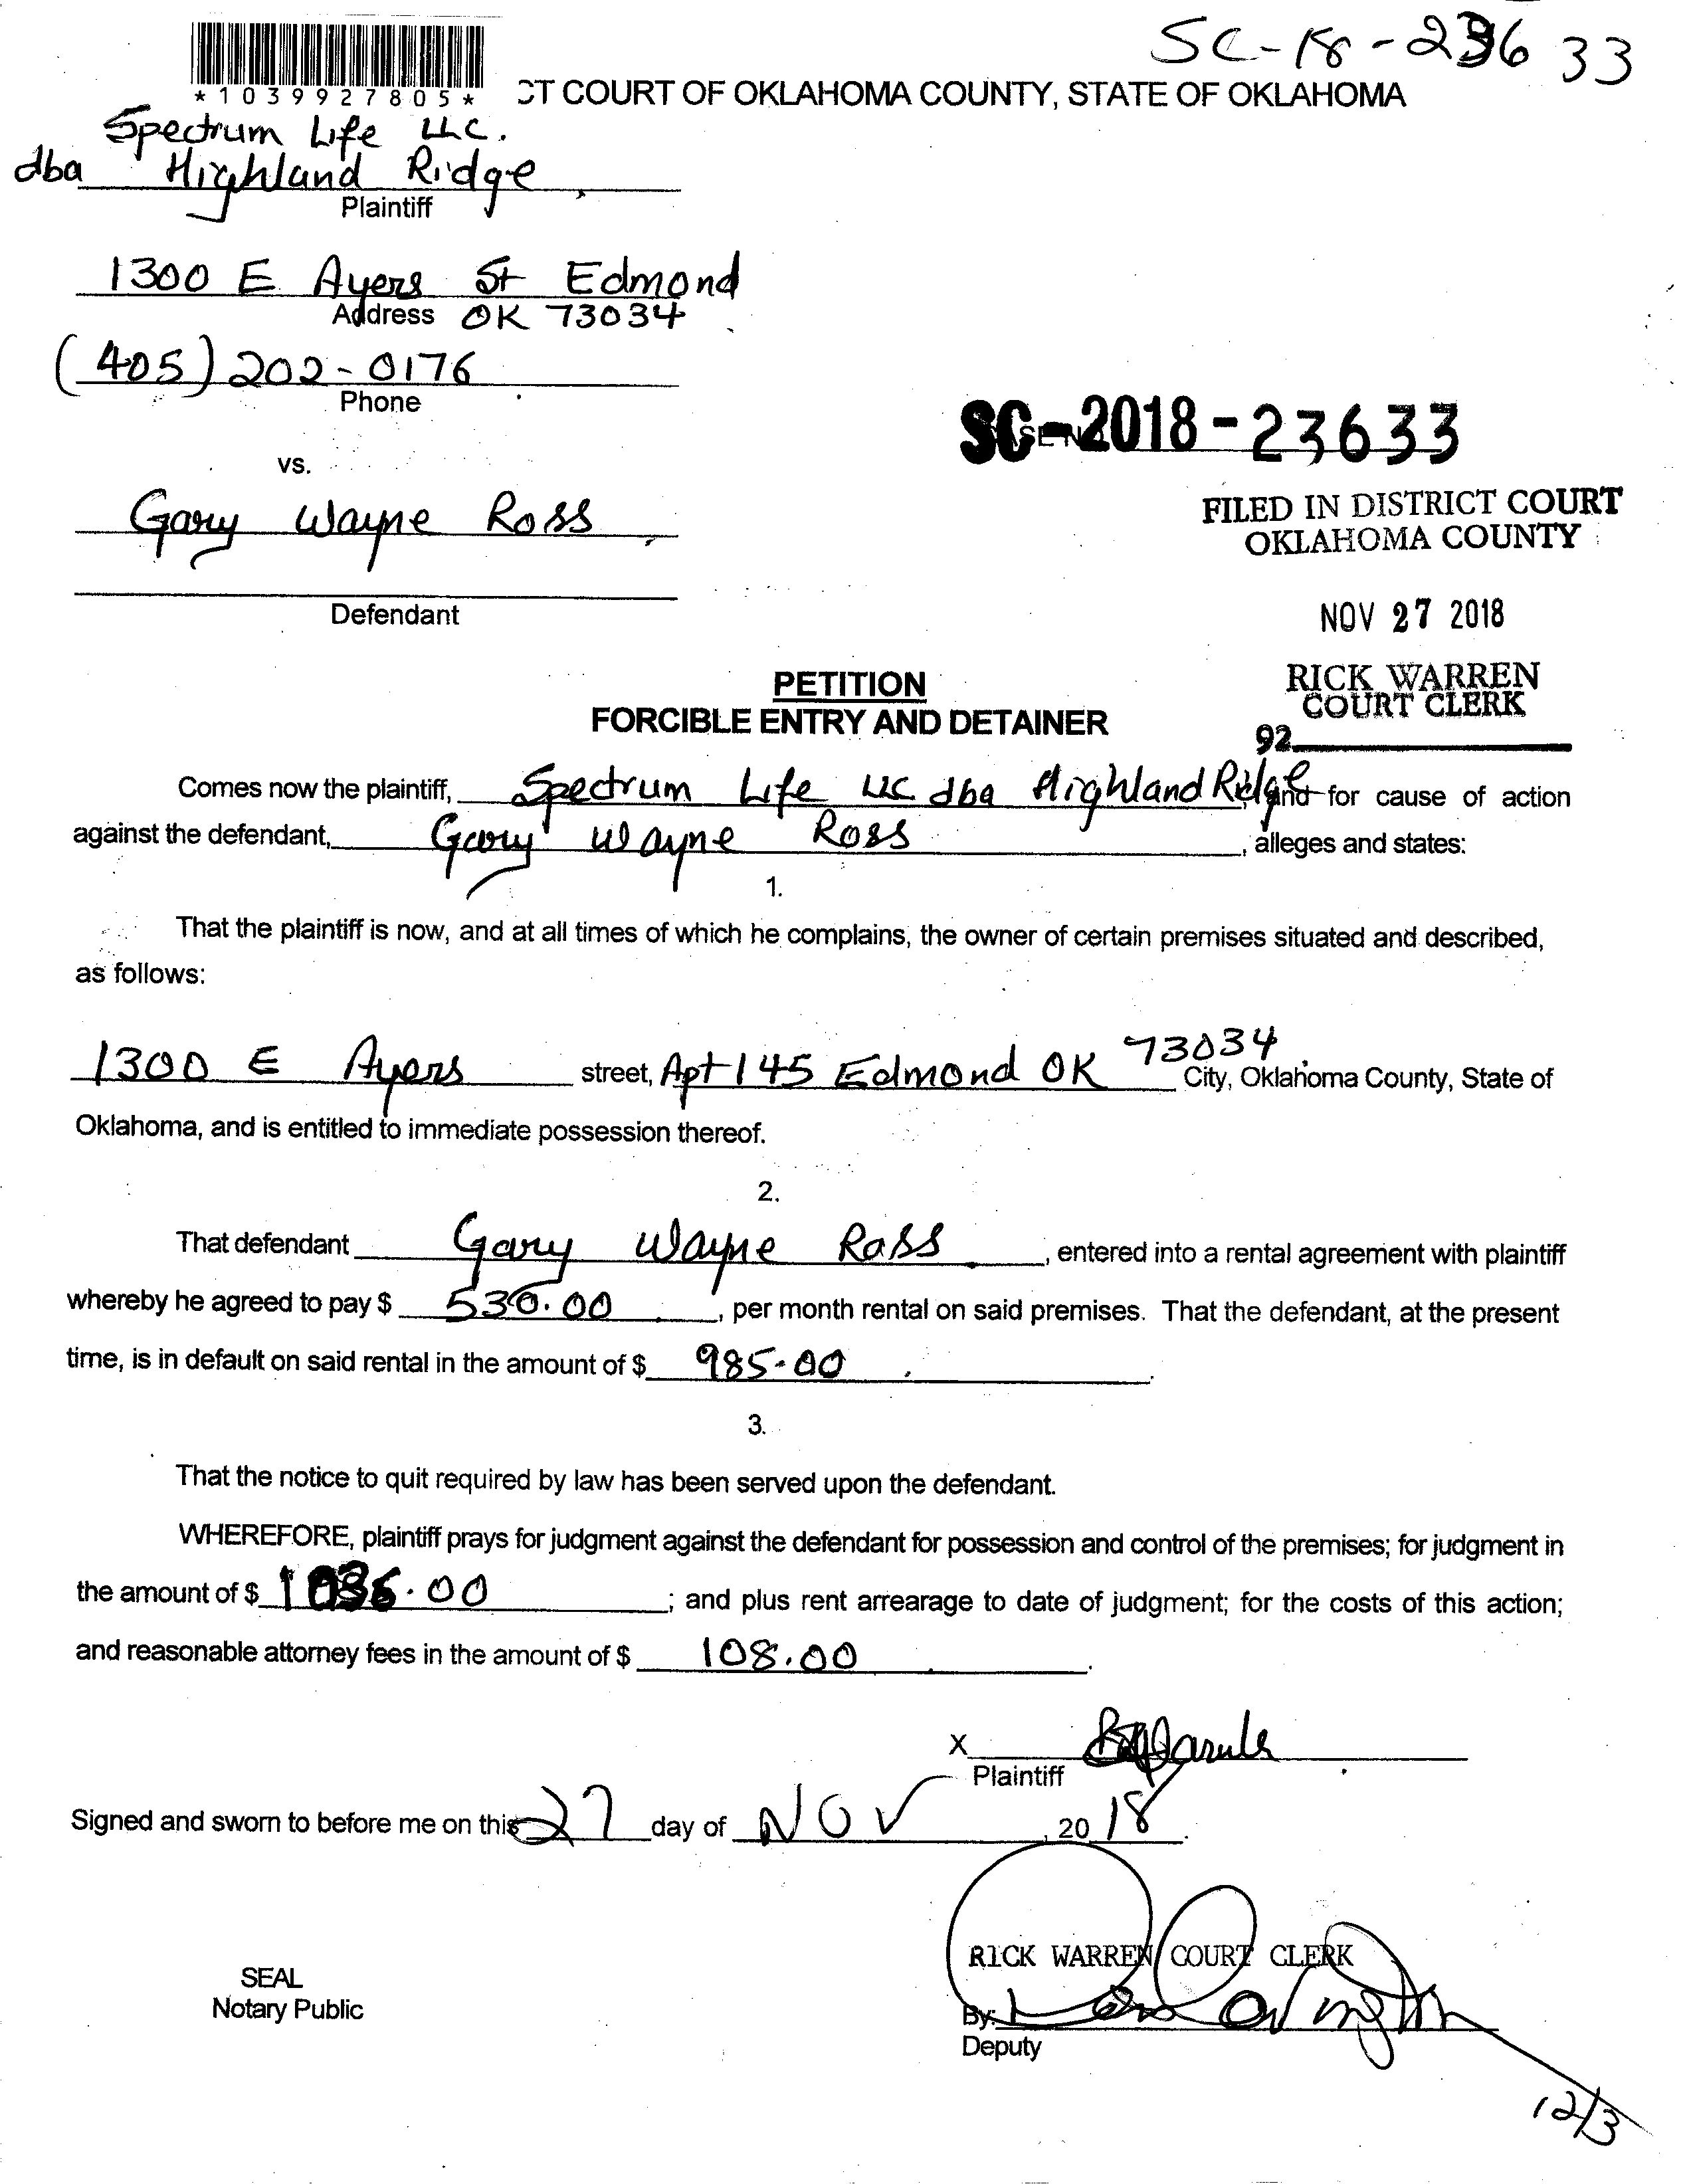 SC-18-23633
*1039927805*
CT COURT OF OKLAHOMA COUNTY, STATE OF OKLAHOMA
Spectrum Life LLC.
dba Highland Ridge,
Plaintiff
1300 E Ayers St Edmond
Address OK 73034
(405) 202-0176
Phone
SC-2018-23633
vs.
Gary Wayne Ross,
FILED IN DISTRICT COURT
OKLAHOMA COUNTY
Defendant
NOV 27 2018
RICK WARREN
COURT CLERK
92
PETITION
FORCIBLE ENTRY AND DETAINER
Comes now the plaintiff, Spectrum Life LLC dba Highland Ridge, and for cause of action
against the defendant, Gary Wayne Ross, alleges and states:
1.
That the plaintiff is now, and at all times of which he complains, the owner of certain premises situated and described,
as follows:
1300 E Ayers street, Apt 145 Edmond OK 73034 City, Oklahoma County, State of
Oklahoma, and is entitled to immediate possession thereof.
2.
That defendant Gary Wayne Ross, entered into a rental agreement with plaintiff
whereby he agreed to pay $ 530.00, per month rental on said premises. That the defendant, at the present
time, is in default on said rental in the amount of $ 985.00.
3.
That the notice to quit required by law has been served upon the defendant.
WHEREFORE, plaintiff prays for judgment against the defendant for possession and control of the premises; for judgment in
the amount of $ .00; and plus rent arrearage to date of judgment; for the costs of this action;
and reasonable attorney fees in the amount of $ 108.00.
X
Plaintiff
Signed and sworn to before me on this 27 day of NOV, 2018.
RICK WARREN COURT CLERK
SEAL
Notary Public
By:
Deputy
12/3